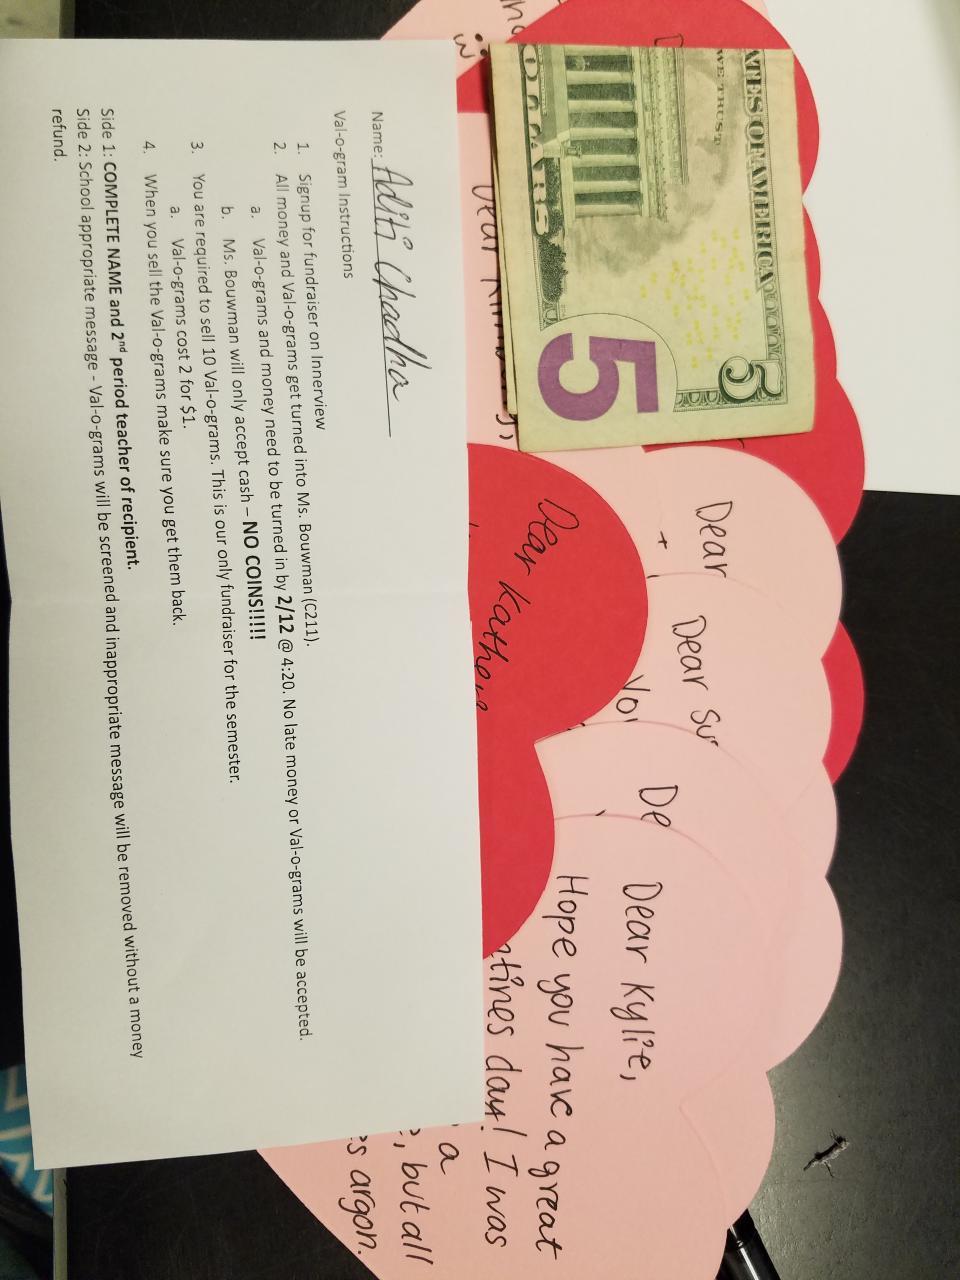 Name: Aditi Chadha
Val-o-gram Instructions
1. Signup for fundraiser on Innerview
2. All money and Val-o-grams get turned into Ms. Bouwman (C211).
a. Val-o-grams and money need to be turned in by 2/12 @ 4:20. No late money or Val-o-grams will be accepted.
b. Ms. Bouwman will only accept cash – NO COINS!!!!!
3. You are required to sell 10 Val-o-grams. This is our only fundraiser for the semester.
a. Val-o-grams cost 2 for $1.
4. When you sell the Val-o-grams make sure you get them back.
Side 1: COMPLETE NAME and 2nd period teacher of recipient.
Side 2: School appropriate message - Val-o-grams will be screened and inappropriate message will be removed without a money
refund.
TES OF AMERICA
WE TRUST
DOLLARS
5
5
Dear
Dear
Dear Su
You
De
Dear Kathe
Dear Kylie,
Hope you have a great
ntines day! I was
a
, but all
es argon.